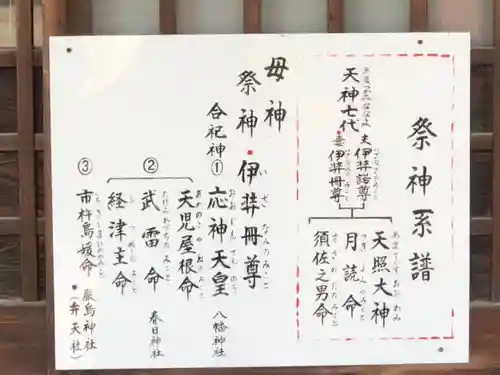 祭神系譜
天神七代
夫 伊弉諾尊
妻 伊弉冊尊
天照大神
月読命
須佐之男命
母神
祭神・伊弉冊尊
いざなんみこと
合祀神
①応神天皇 八幡神社
おおじんてんのう
②天児屋根命
武雷命 春日神社
経津主命
③市杵島媛命 厳島神社
(弁天社)